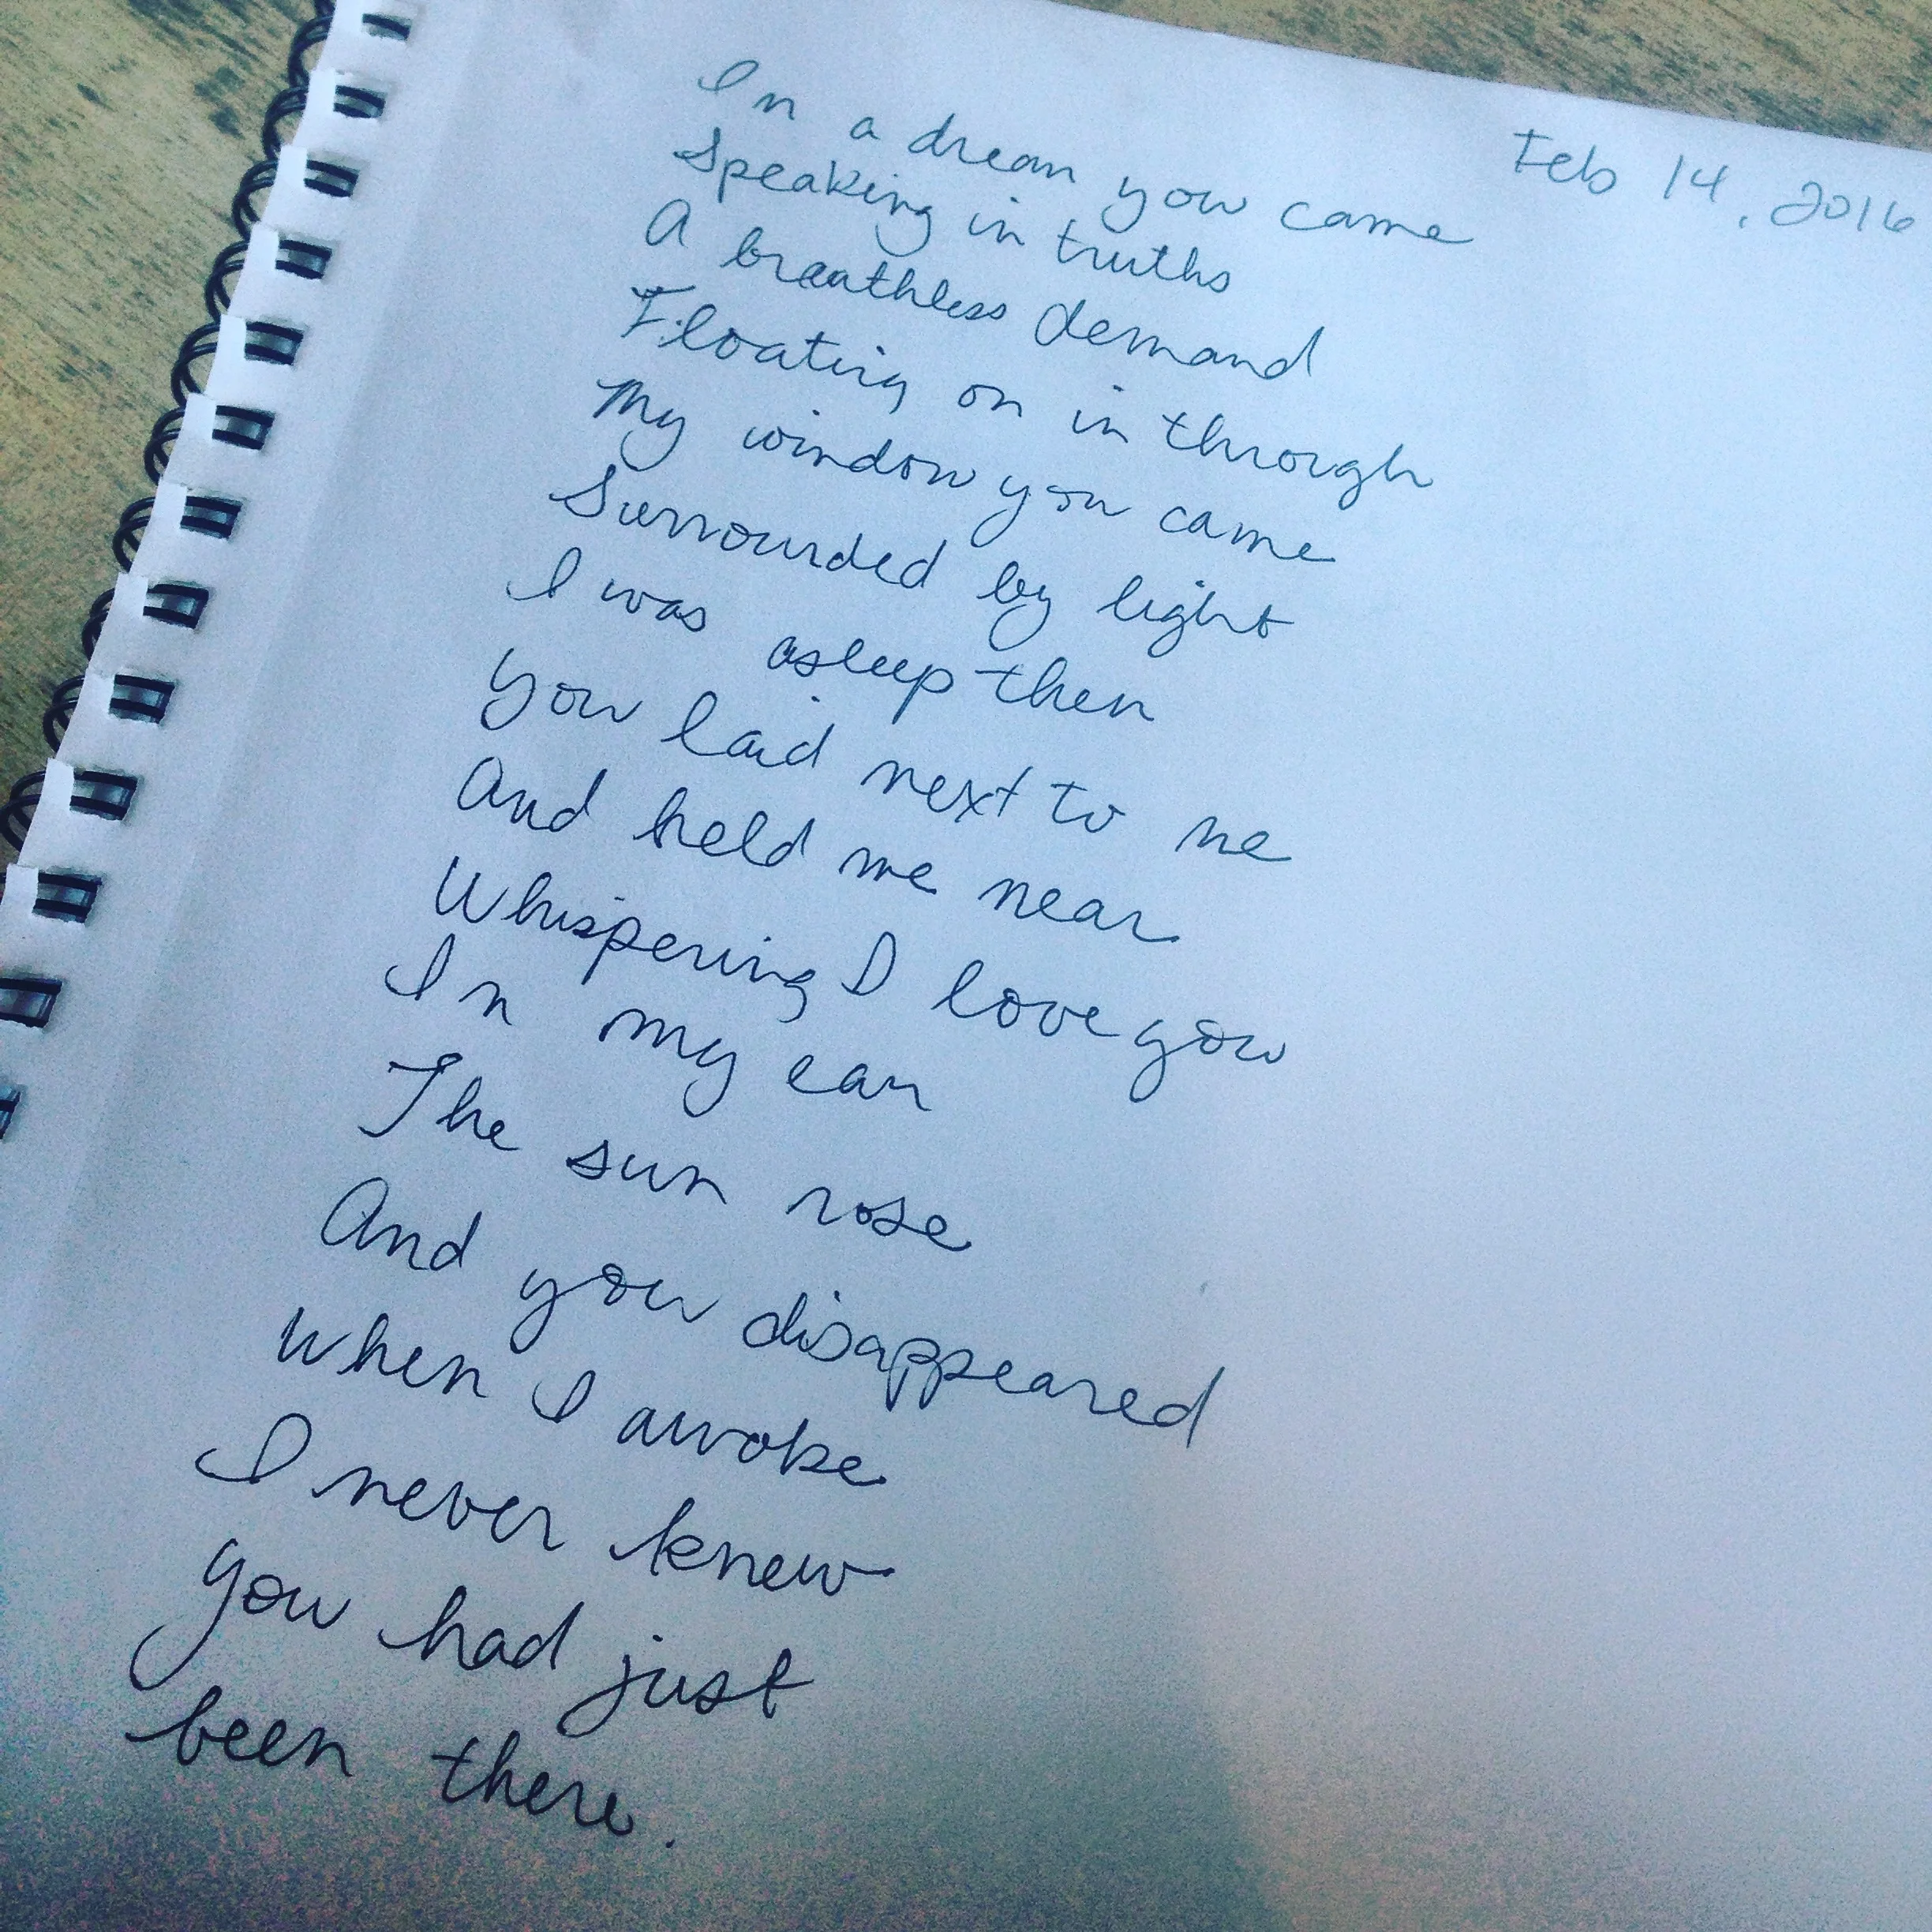 Feb 14, 2016
In a dream you came
Speaking in truths
A breathless demand
Floating on in through
My window you came
Surrounded by light
I was asleep then
You laid next to me
And held me near
Whispering I love you
In my ear
The sun rose
And you disappeared
When I awoke
I never knew
You had just
been there.